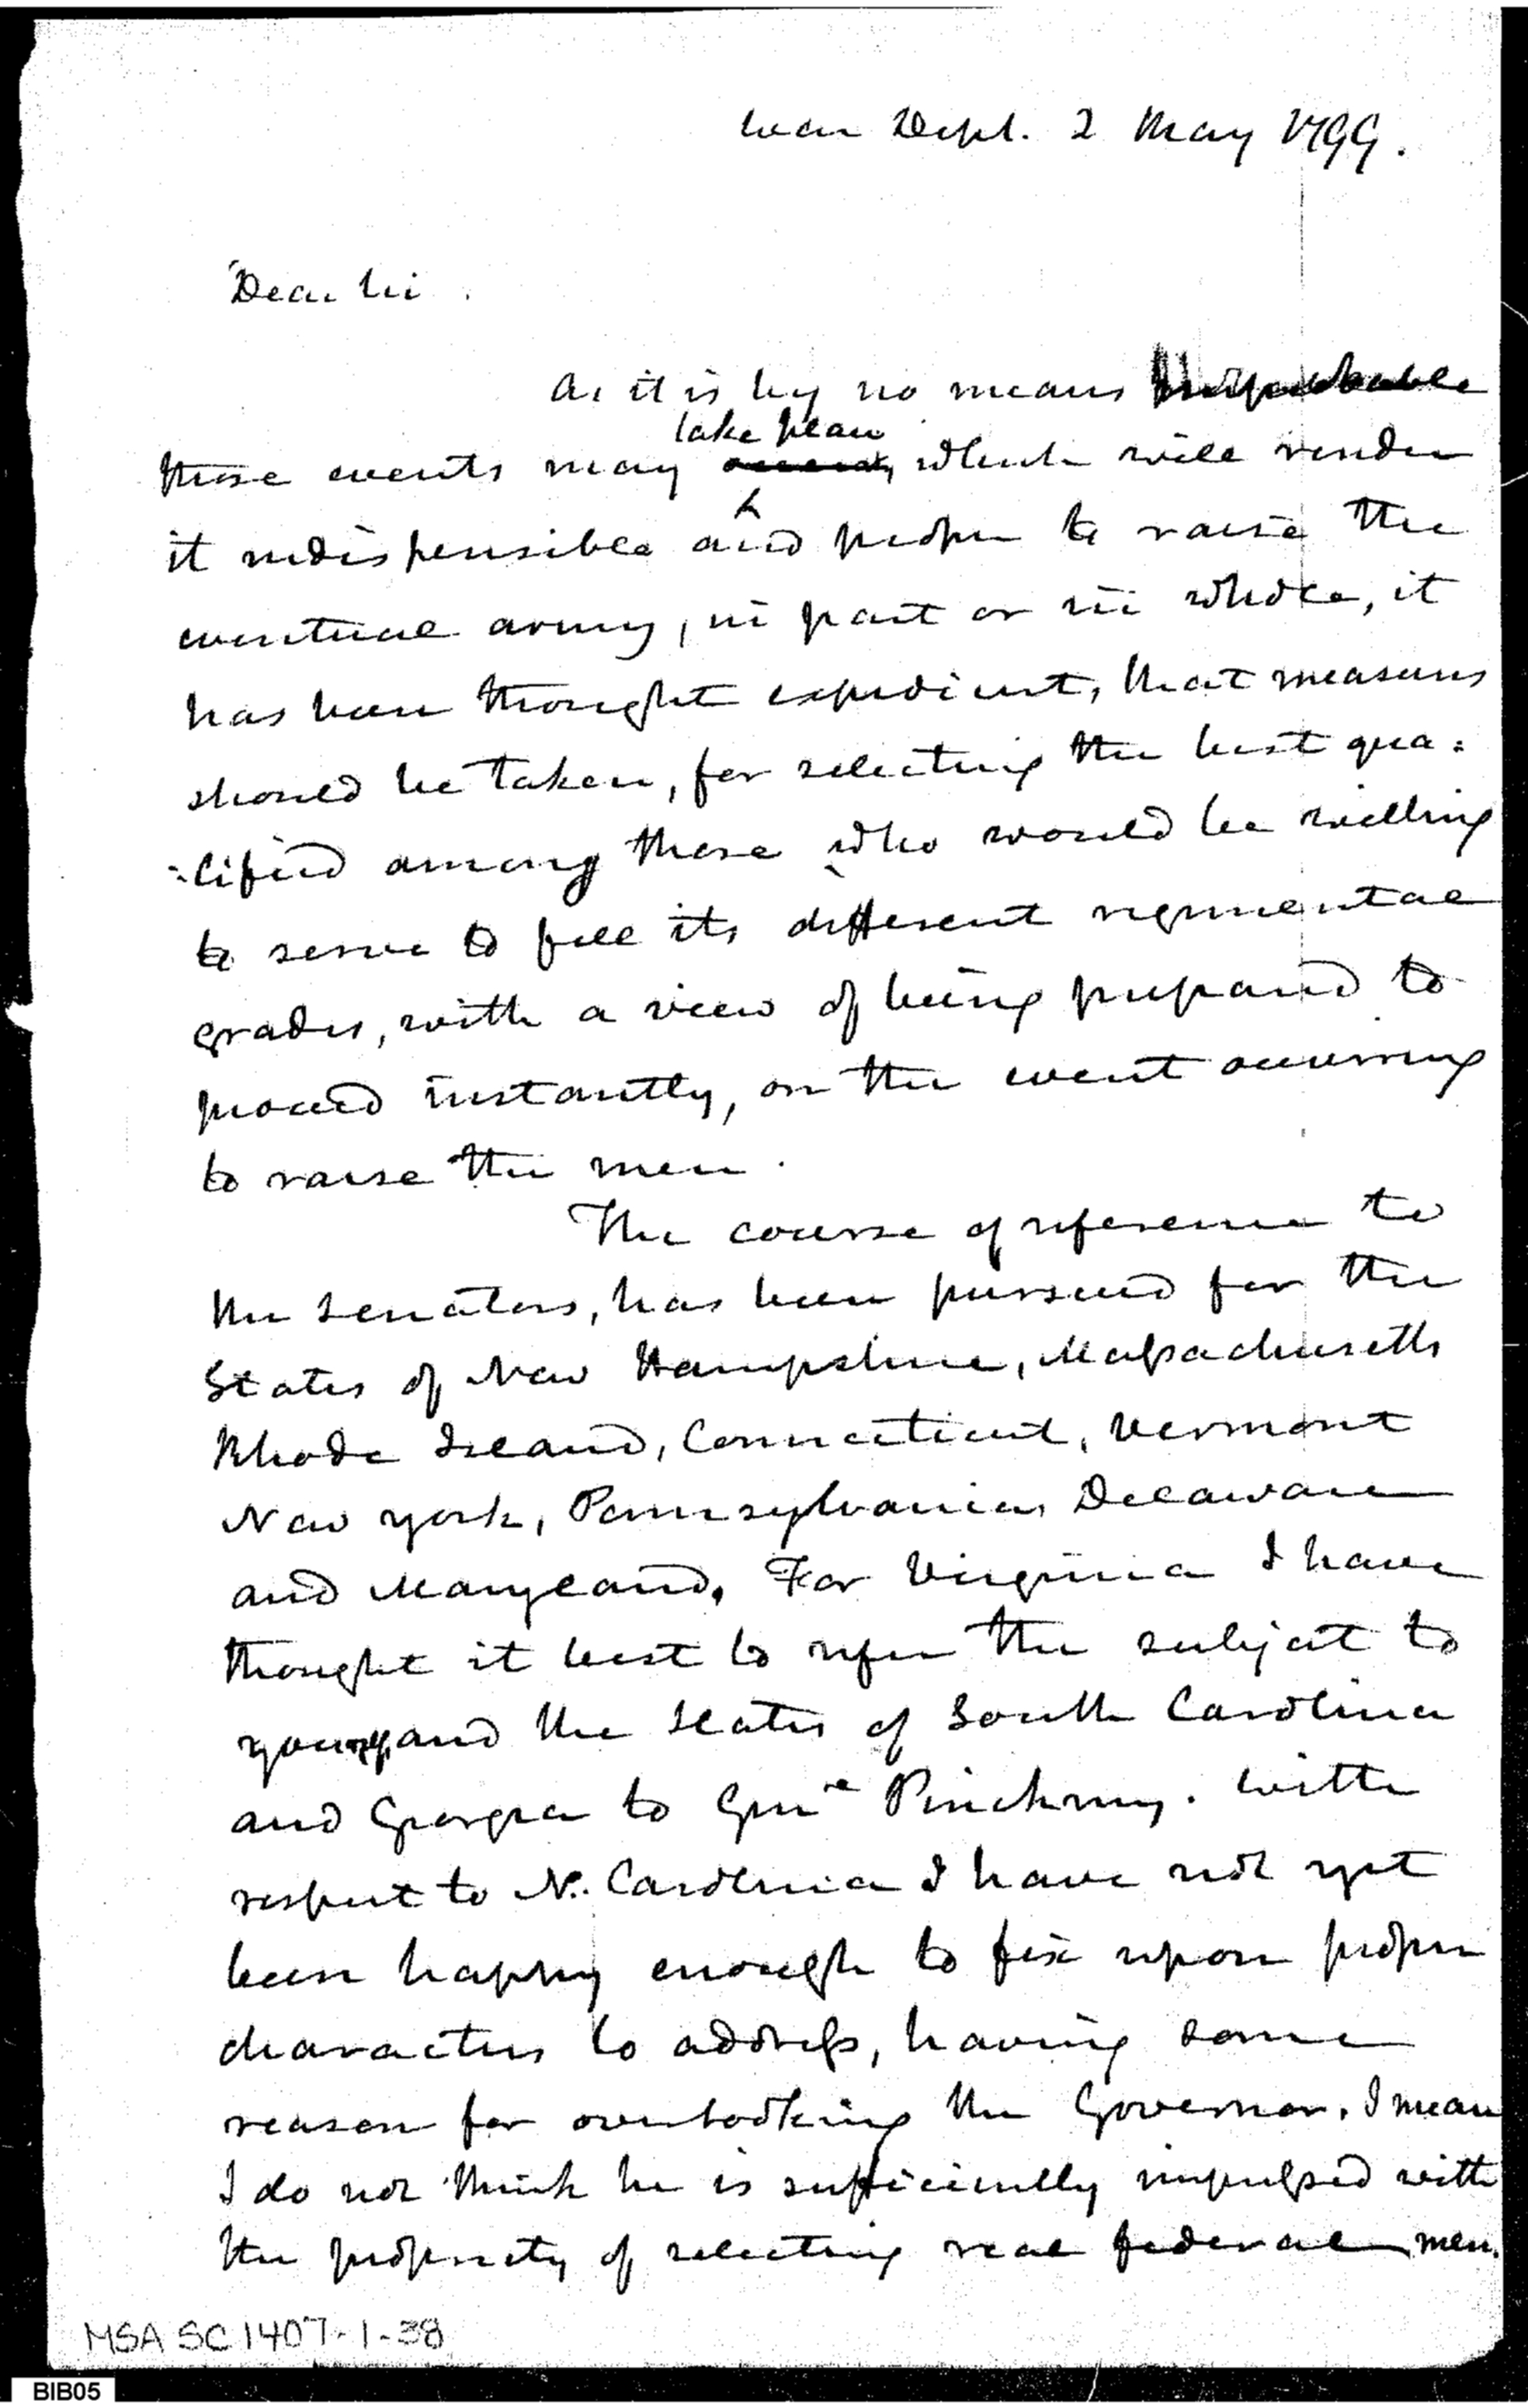 War Dept. 2 May 1799.
Dear Sir.
As it is by no means improbable
those events may
take place
which will render
it indispensible and proper to raise the
eventual army, in part or in whole, it
has been thought expedient, that measures
should be taken, for selecting the best qua=
=lified among those who would be willing
to serve to fill its different regimental
grades, with a view of being prepared to
proceed instantly, on the event occurring
to raise the men.
The course of reference to
the Senators, has been pursued for the
States of New Hampshire, Massachusetts
Rhode Island, Connecticut, Vermont
New York, Pennsylvania, Delaware
and Maryland. For Virginia I have
thought it best to refer the subject to
you, and the States of South Carolina
and Georgia to Genl Pinckney. With
respect to N. Carolina I have not yet
been happy enough to fix upon proper
characters to address, having some
reason for overlooking the Governor. I mean
I do not think he is sufficiently impressed with
the propriety of selecting real federal men.
MSA SC 1407-1-38
BIB05